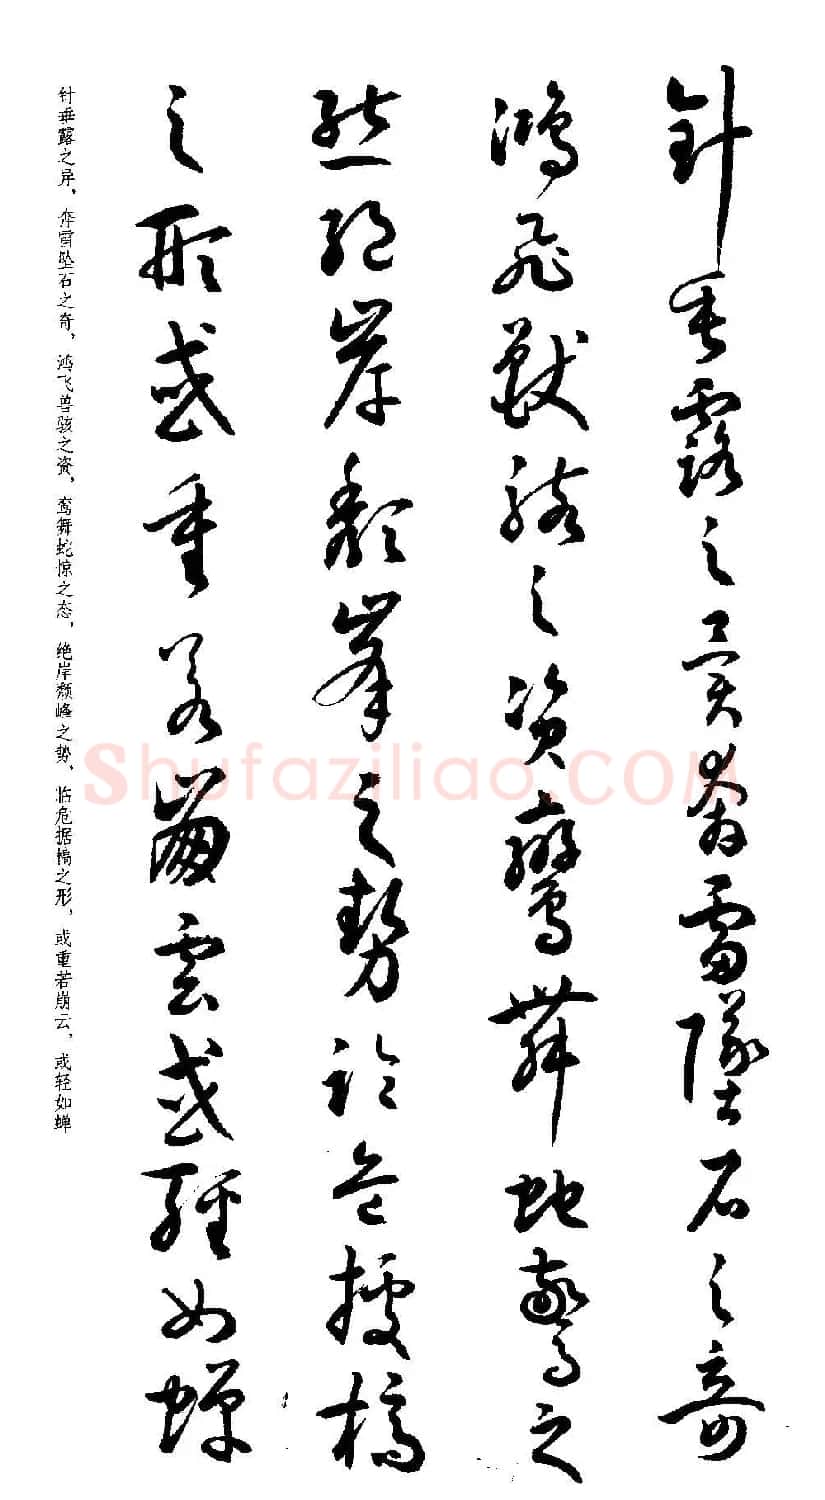 針垂露之異奔雷墜石之奇
鴻飛獸駭之資鸞舞蛇驚之
態絕岸頹峯之勢臨危據槁
之形或重若崩雲或輕如蟬
针垂露之异，奔雷坠石之奇，鸿飞兽骇之资，鸾舞蛇惊之态，绝岸颓峰之势，临危据槁之形，或重若崩云，或轻如蝉
Shufaziliao.COM